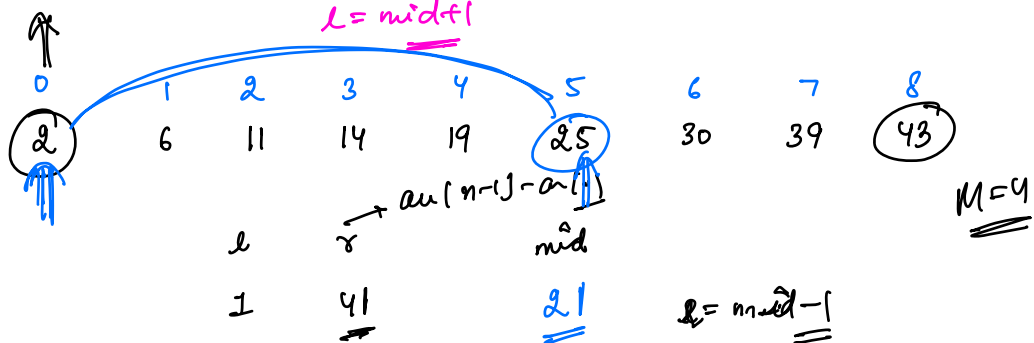 l = mid+1
0 1 2 3 4 5 6 7 8
2 6 11 14 19 25 30 39 43
M=4
l r mid
1 41 21 = mid-1